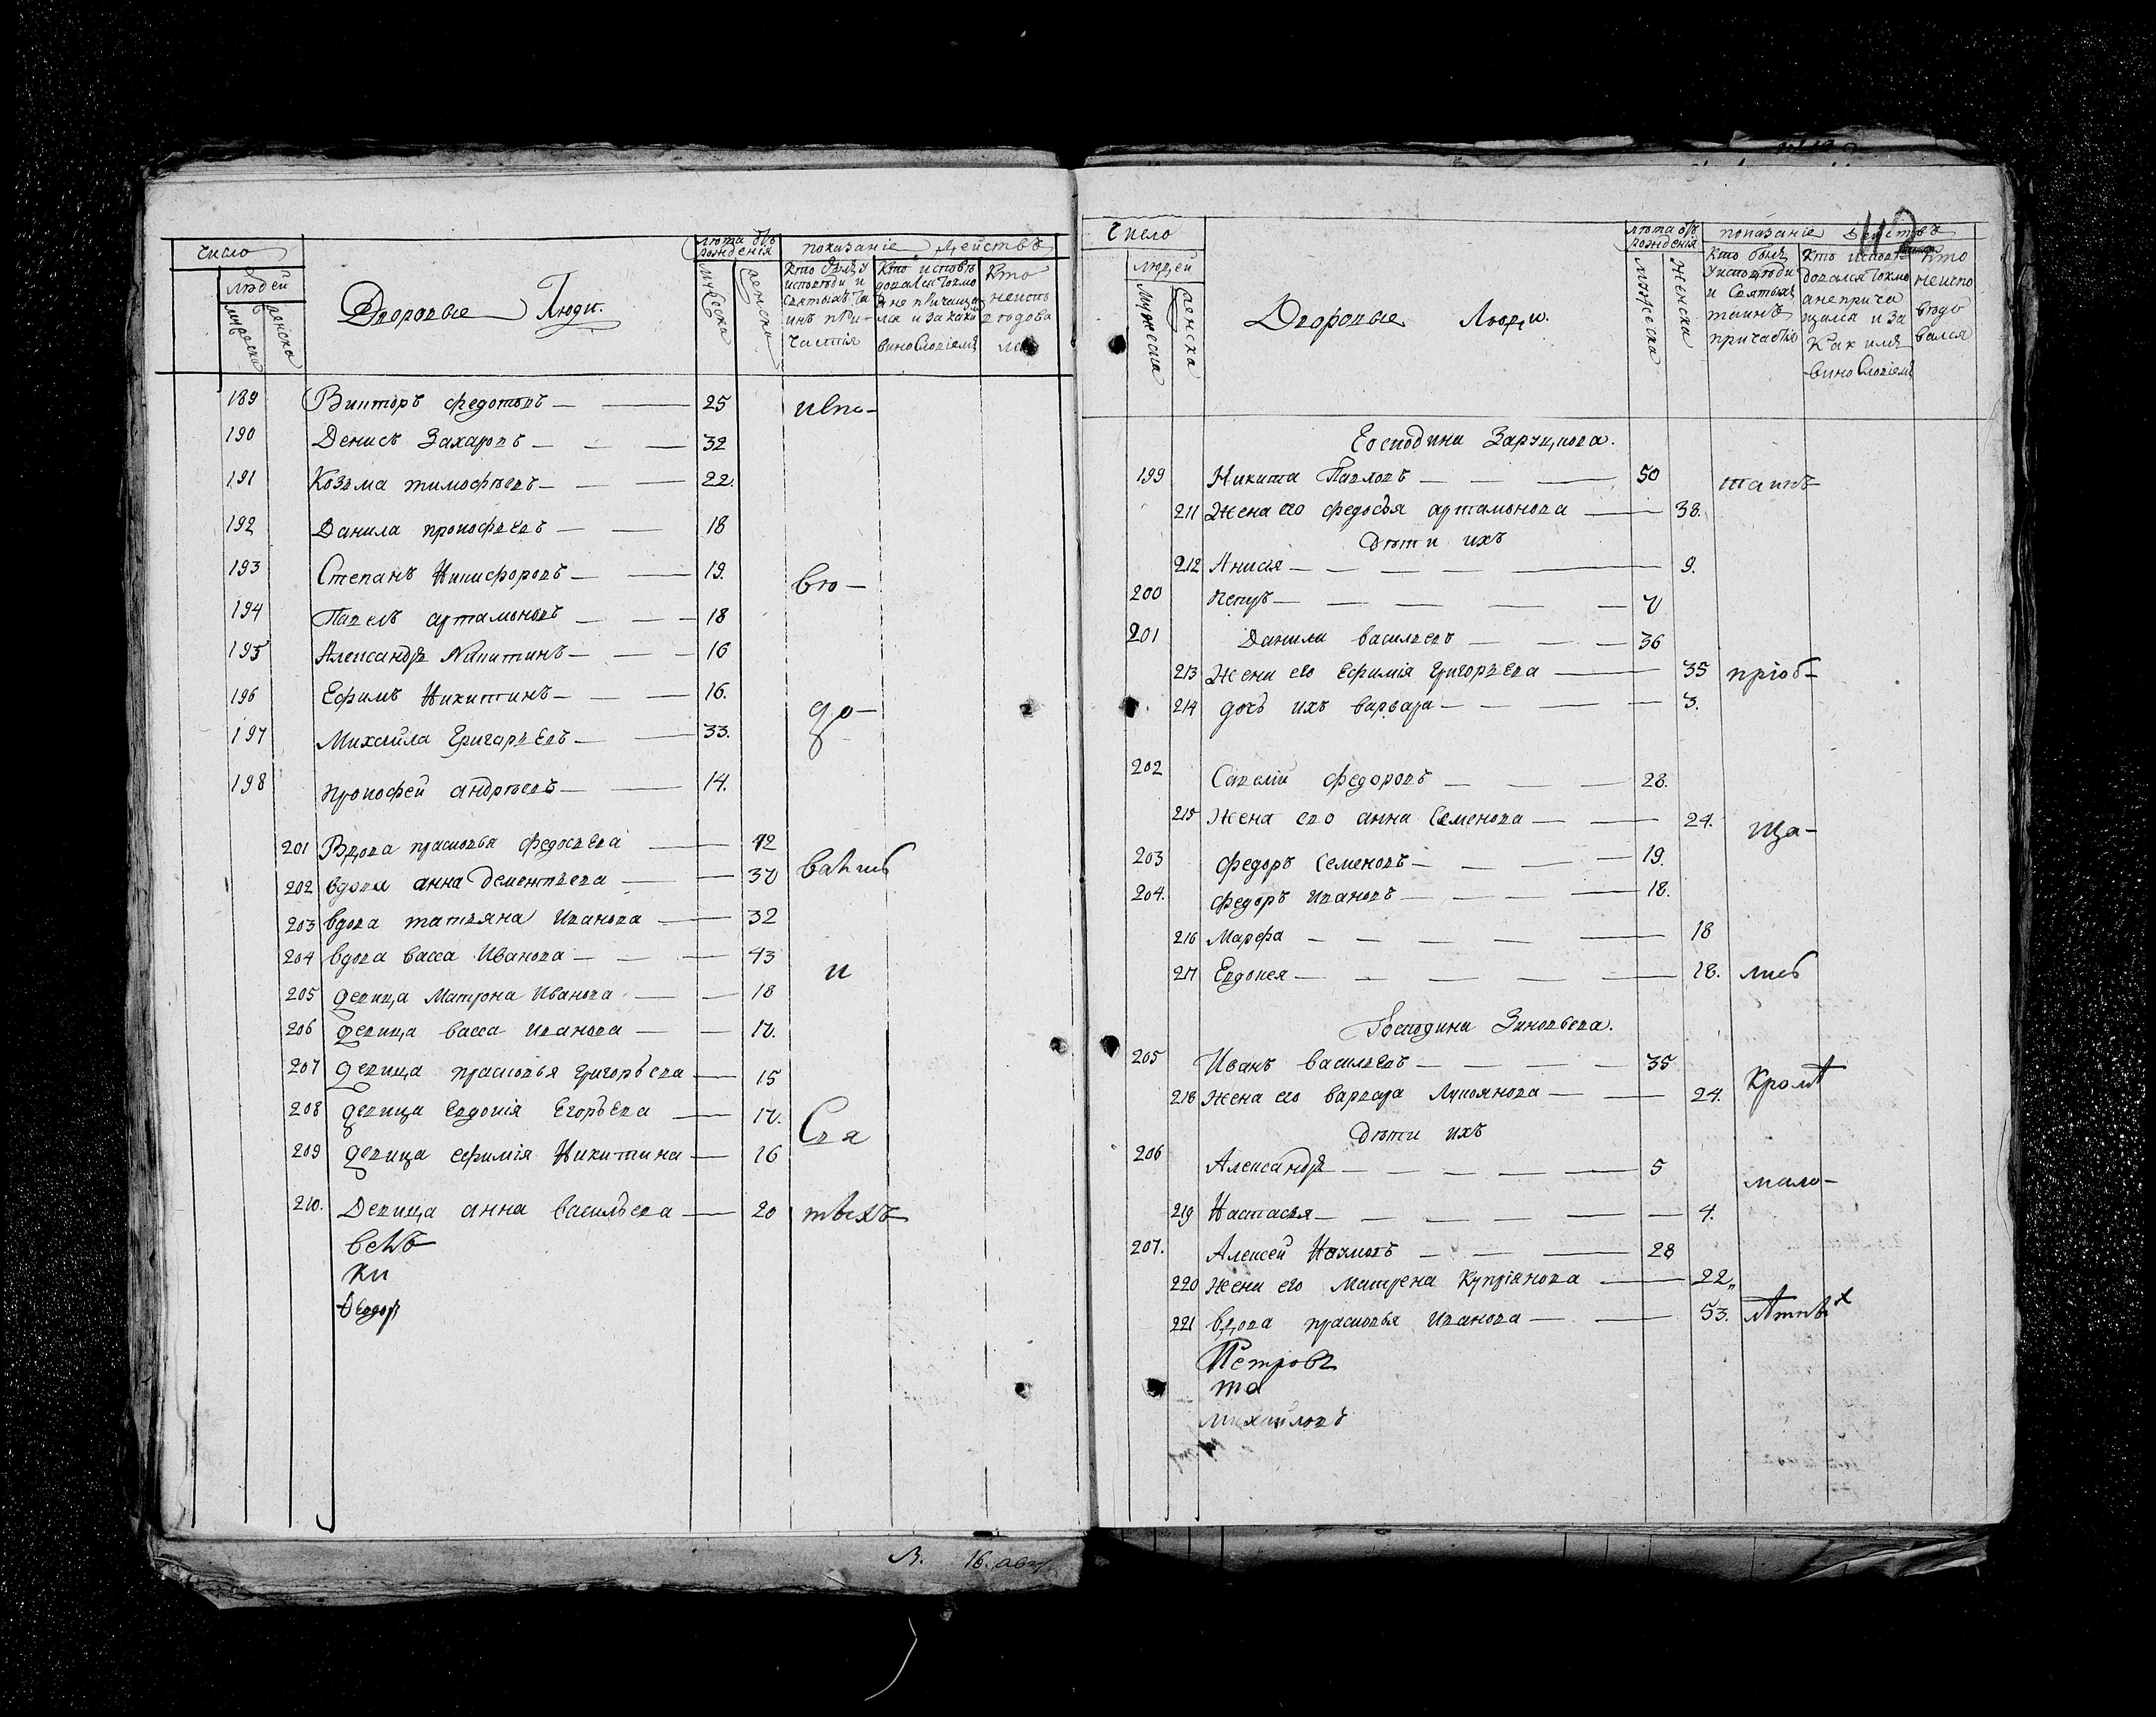 число
людей
мужеска
женска
Дворовые Люди.
лѣта отъ рожденія
мужеска
женска
показаніе дѣйствъ
Кто былъ у исповѣди и святыхъ таинъ причастія
Кто исповѣдовался токмо а не причащался и за какимъ винословіемъ
Кто неисповѣдовался
189 Викторъ Федотовъ — — 25 испо-
190 Денисъ Захаровъ — — — 32
191 Козьма тимофѣевъ — — — 22.
192 Данила прокофьевъ — — 18
193 Степанъ Никифоровъ — — 19. вѣ-
194 Павелъ артамоновъ — — — 18
195 Александръ Никитинъ — — — 16
196 Ефимъ Никитинъ — — — 16. до-
197 Михайла Григорьевъ — — 33.
198 прокофей андрѣевъ — — 14.
201 Вдова прасковья Федосѣева — — 42
202 вдова анна Дементьева — — 37 вались
203 вдова татьяна Иванова — — 32
204 вдова васса Иванова — — — 43 и
205 девица Матрона Иванова — — 18
206 девица васса иванова — — 17.
207 девица прасковья Григорьева — 15
208 девица Евдокія Егорьева — 17. Свя
209 девица ефимія Никитина — 16
210. Девица анна васильева — 20 тыхъ
всѣ
ки
Ѳеодор
Л. 16. авгу
Число
людей
мужеска
женска
Дворовые Люди.
лѣта отъ рожденія
мужеска
женска
показаніе дѣйствъ
Кто былъ у исповѣди и святыхъ таинъ причастія
Кто исповѣдовался токмо а не причащался и за какимъ винословіемъ
Кто неисповѣдовался
Господина Заруцкова.
199 Никита Павловъ — — — 50 таинъ
211 Жена его федосья артамонова — 38.
Дѣти ихъ
212 Анисья — — — — — 9.
200 петръ — — — — — 7
201 Данила васильевъ — — — 36
213 Жена его Ефимія Григорьева — 35 пріоб-
214 дочь ихъ варвара — — — — 3.
202 Савелій федоровъ — — — 28.
215 Жена его анна Семенова — — 24. ща-
203 федоръ Семеновъ — — — 19.
204. федоръ ивановъ — — — 18.
216 Марфа — — — — — 18
217 Евдокея — — — — — 18. лись
Господина Зиновьева.
205 Иванъ васильевъ — — — — 35 Кромѣ
218 жена его варвара Лукоянова — — 24.
Дѣти ихъ
206 Александръ — — — — — 5 мало-
219 Настасья — — — — — 4.
207. Алексей Наумовъ — — — 28
220 жена его матрена Купріянова — 22,,
221 вдова прасковья Иванова — — 53. лѣтнѣх
Петровъ
та
михайловъ